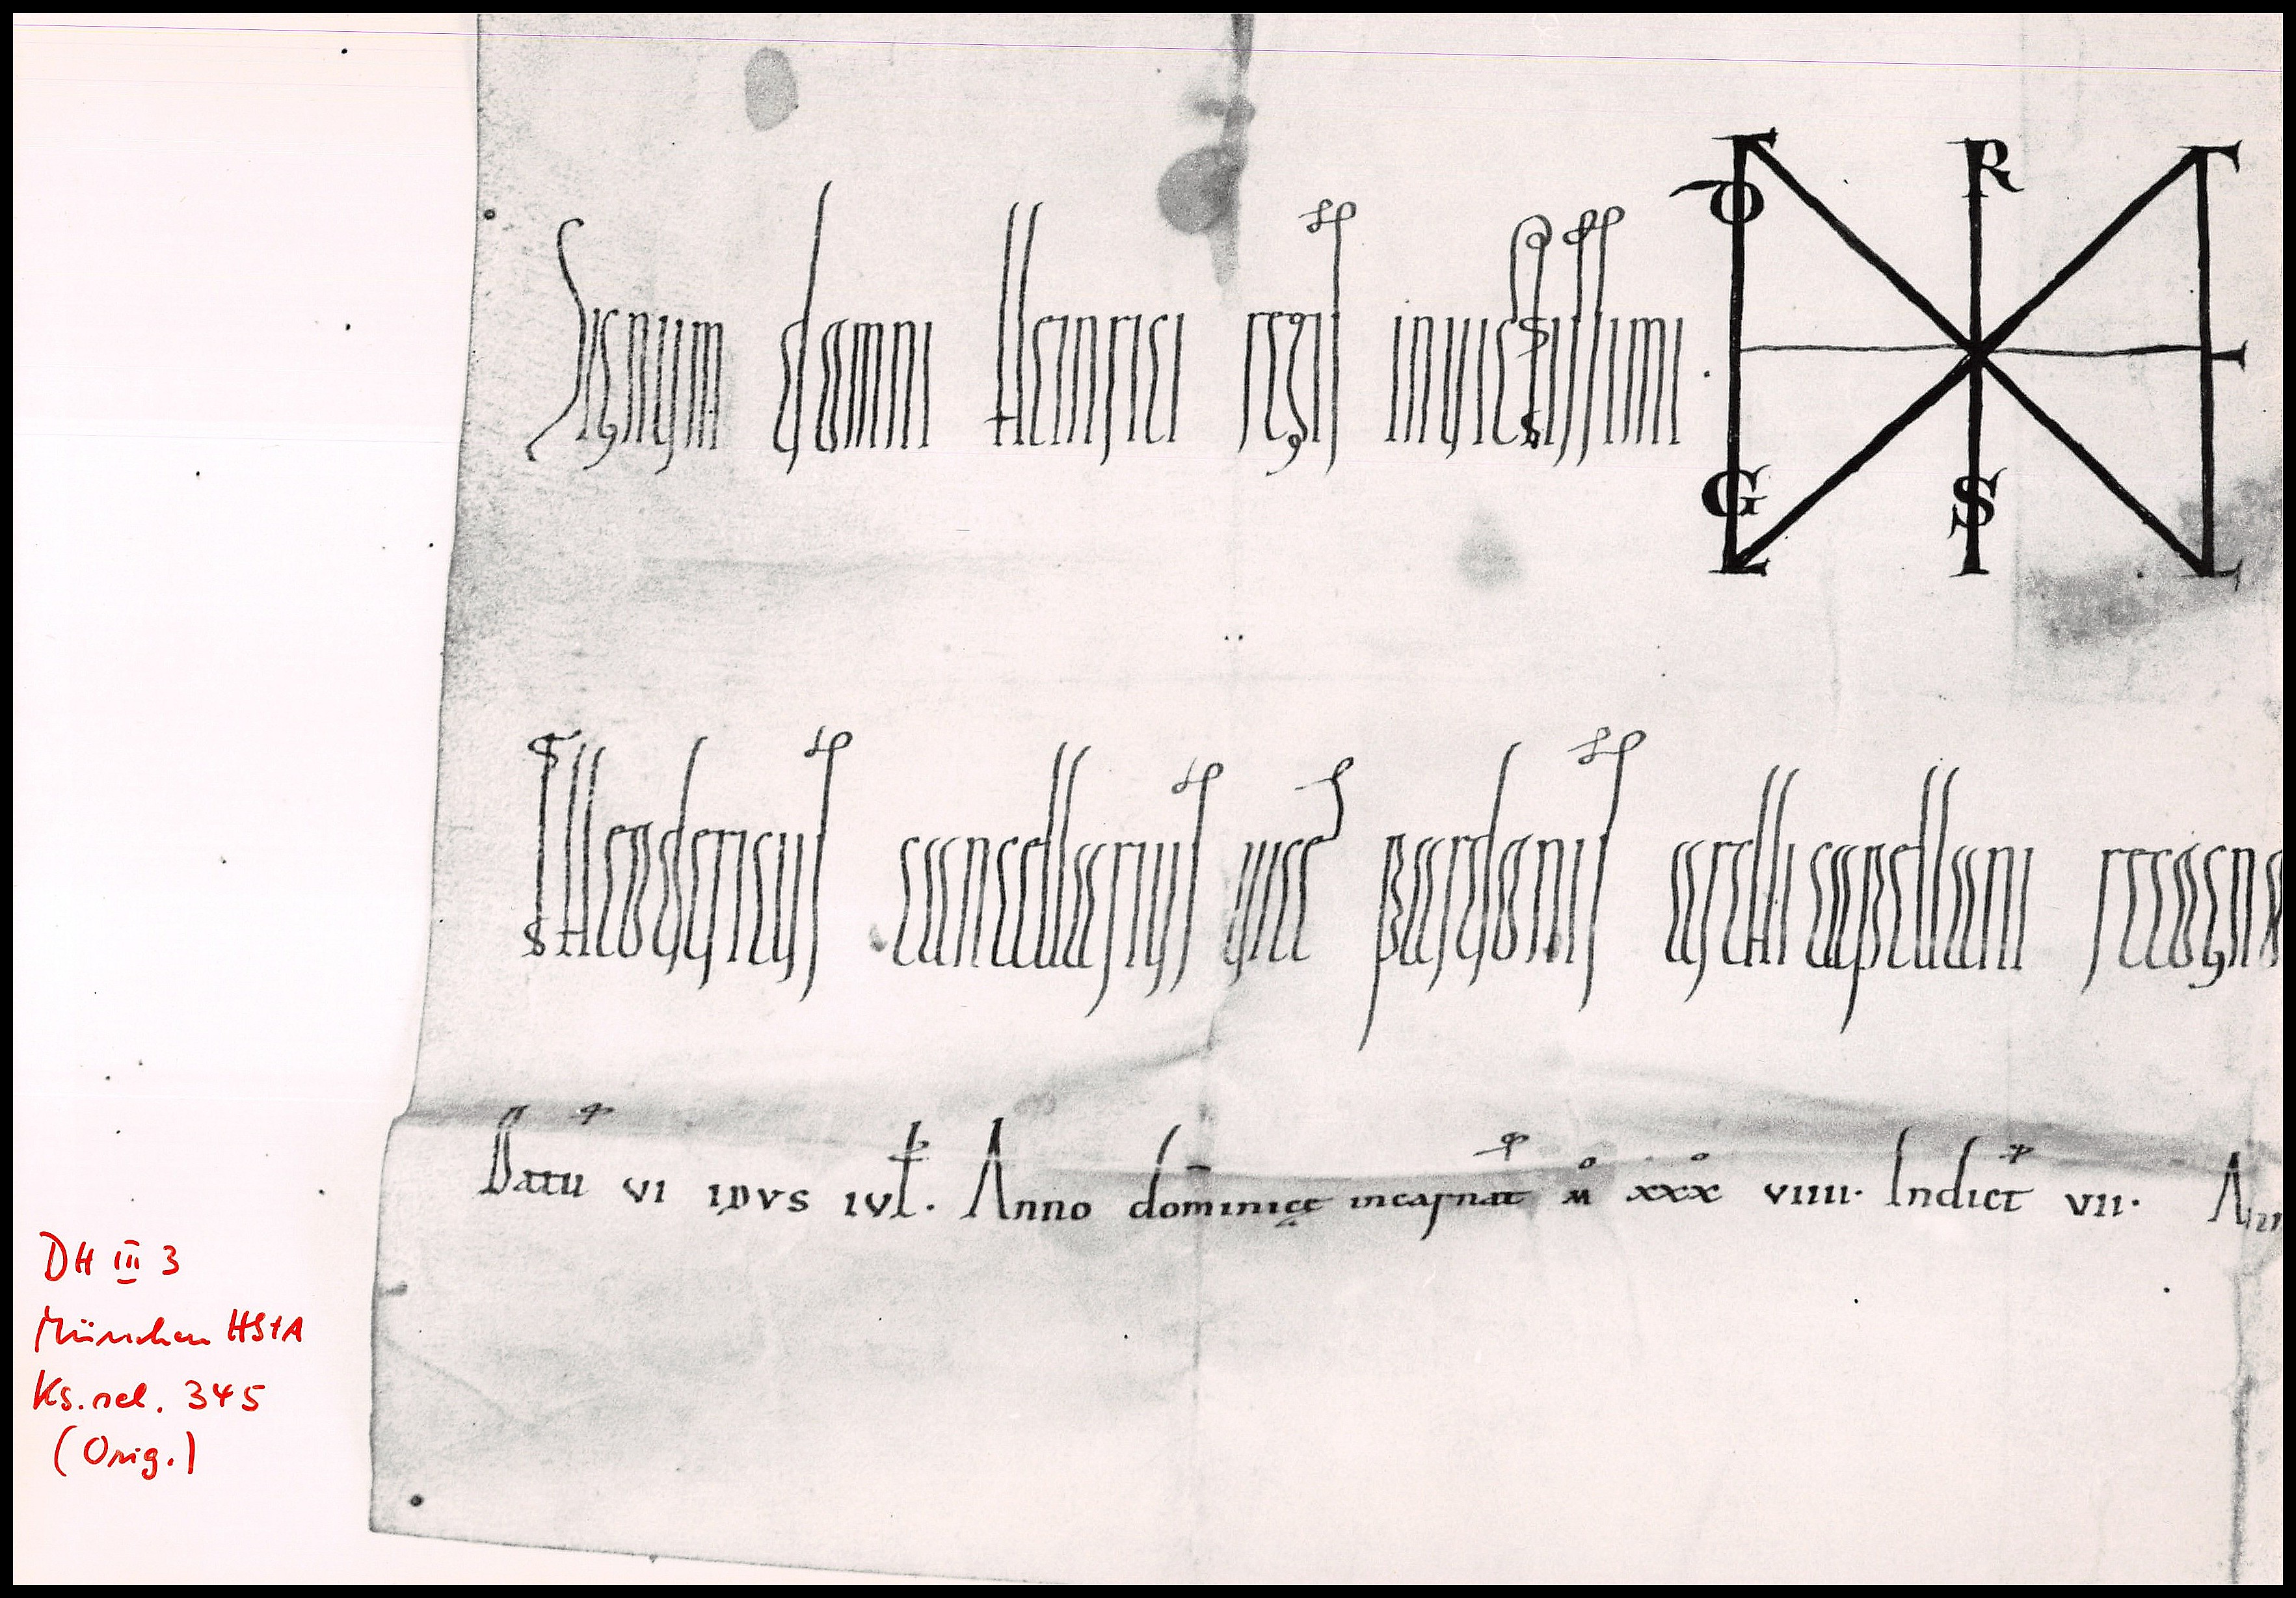 Signum domni Heinrici regis invictissimi
R
G
S
Theodericus cancellarius vice Bardonis archicapellani recogno
Datu VI IDVS IVL. Anno dominicę incarnat M XXX VIIII. Indict VII. An
DH III 3
München HStA
Ks. sel. 345
(Orig.)